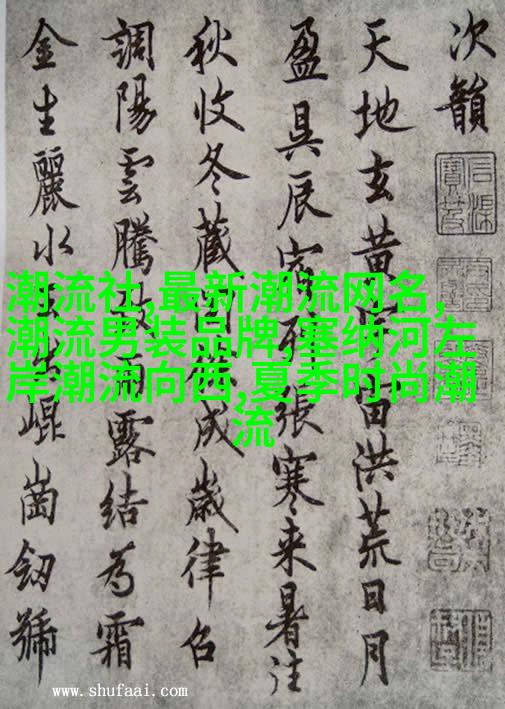 次韻
天地玄黃宙洪荒日月
盈昃辰宿列張寒来暑往
秋收冬藏閏餘成歲律召
調陽雲騰雨露結為霜
金生麗水出崐崗劒號
潮流社,最新潮流网名,
潮流男装品牌,塞纳河左
岸潮流向西,夏季时尚潮
流
www.shufaai.com